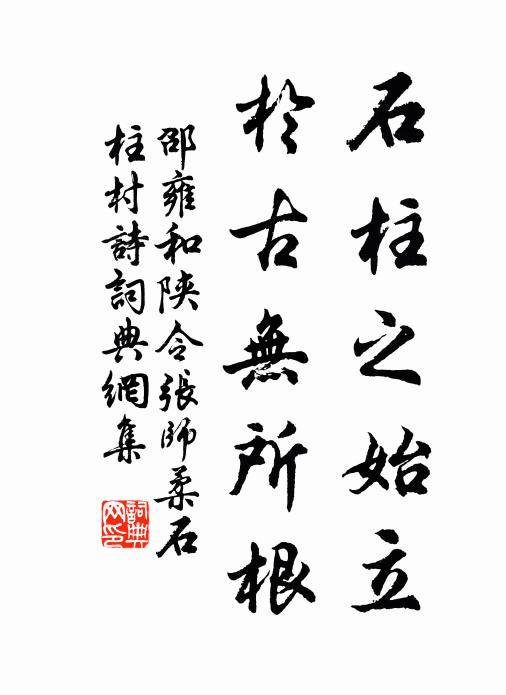 石柱之始立
於古無所根
邵雍和陝令張師柔石
柱村詩詞典網集
詞典
网印